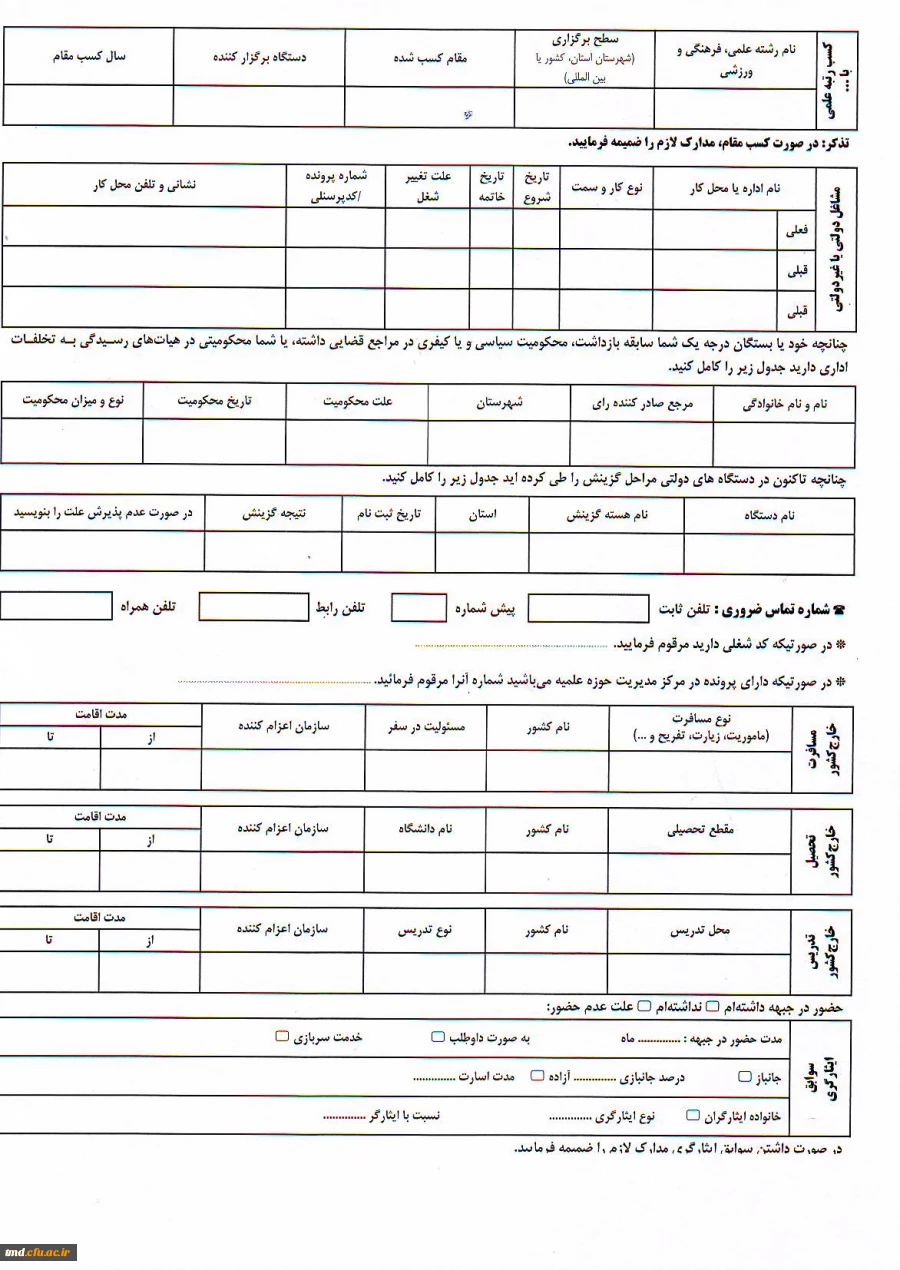 کسب رتبه علمی با ...
نام رشته علمی، فرهنگی و ورزشی
سطح برگزاری
(شهرستان استان، کشور یا بین المللی)
مقام کسب شده
دستگاه برگزار کننده
سال کسب مقام
تذکر: در صورت کسب مقام، مدارک لازم را ضمیمه فرمایید.
مشاغل دولتی یا غیردولتی
نام اداره یا محل کار
نوع کار و سمت
تاریخ شروع
تاریخ خاتمه
علت تغییر شغل
شماره پرونده /کدپرسنلی
نشانی و تلفن محل کار
فعلی
قبلی
قبلی
چنانچه خود یا بستگان درجه یک شما سابقه بازداشت، محکومیت سیاسی و یا کیفری در مراجع قضایی داشته، یا شما محکومیتی در هیات‌های رسیدگی به تخلفات
اداری دارید جدول زیر را کامل کنید.
نام و نام خانوادگی
مرجع صادر کننده رای
شهرستان
علت محکومیت
تاریخ محکومیت
نوع و میزان محکومیت
چنانچه تاکنون در دستگاه های دولتی مراحل گزینش را طی کرده اید جدول زیر را کامل کنید.
نام دستگاه
نام هسته گزینش
استان
تاریخ ثبت نام
نتیجه گزینش
در صورت عدم پذیرش علت را بنویسید
☎ شماره تماس ضروری : تلفن ثابت پیش شماره تلفن رابط تلفن همراه
❊ در صورتیکه کد شغلی دارید مرقوم فرمایید. ................
❊ در صورتیکه دارای پرونده در مرکز مدیریت حوزه علمیه می‌باشید شماره آنرا مرقوم فرمائید. ................
مسافرت خارج کشور
نوع مسافرت
(ماموریت، زیارت، تفریح و ...)
نام کشور
مسئولیت در سفر
سازمان اعزام کننده
مدت اقامت
از
تا
تحصیل خارج کشور
مقطع تحصیلی
نام کشور
نام دانشگاه
سازمان اعزام کننده
مدت اقامت
از
تا
تدریس خارج کشور
محل تدریس
نام کشور
نوع تدریس
سازمان اعزام کننده
مدت اقامت
از
تا
حضور در جبهه داشته‌ام نداشته‌ام علت عدم حضور:
سوابق ایثارگری
مدت حضور در جبهه : ............. ماه به صورت داوطلب خدمت سربازی
جانباز درصد جانبازی ............. آزاده مدت اسارت .............
خانواده ایثارگران نوع ایثارگری ............. نسبت با ایثارگر .............
در صورت داشتن سوابق ایثارگری مدارک لازم را ضمیمه فرمایید.
tmd.cfu.ac.ir